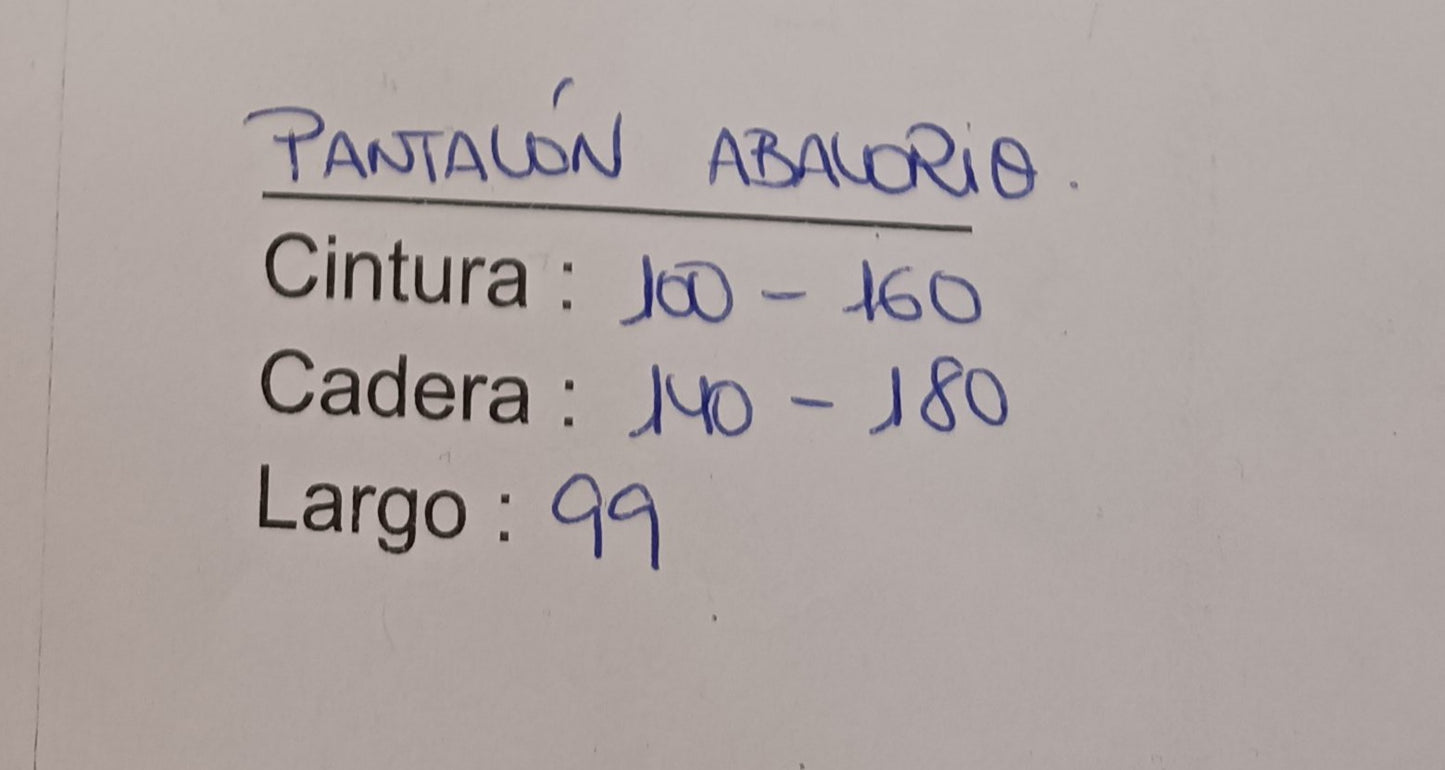 PANTALÓN ABALORIO.
Cintura : 100 - 160
Cadera : 140 - 180
Largo : 99